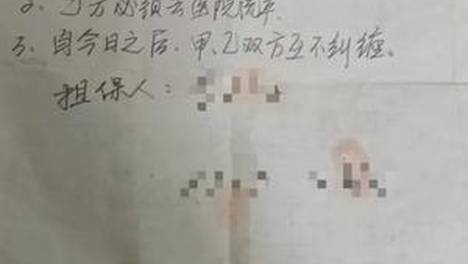 2、乙方必须去医院流产.
3、自今日之后,甲、乙双方互不纠缠。
担保人：